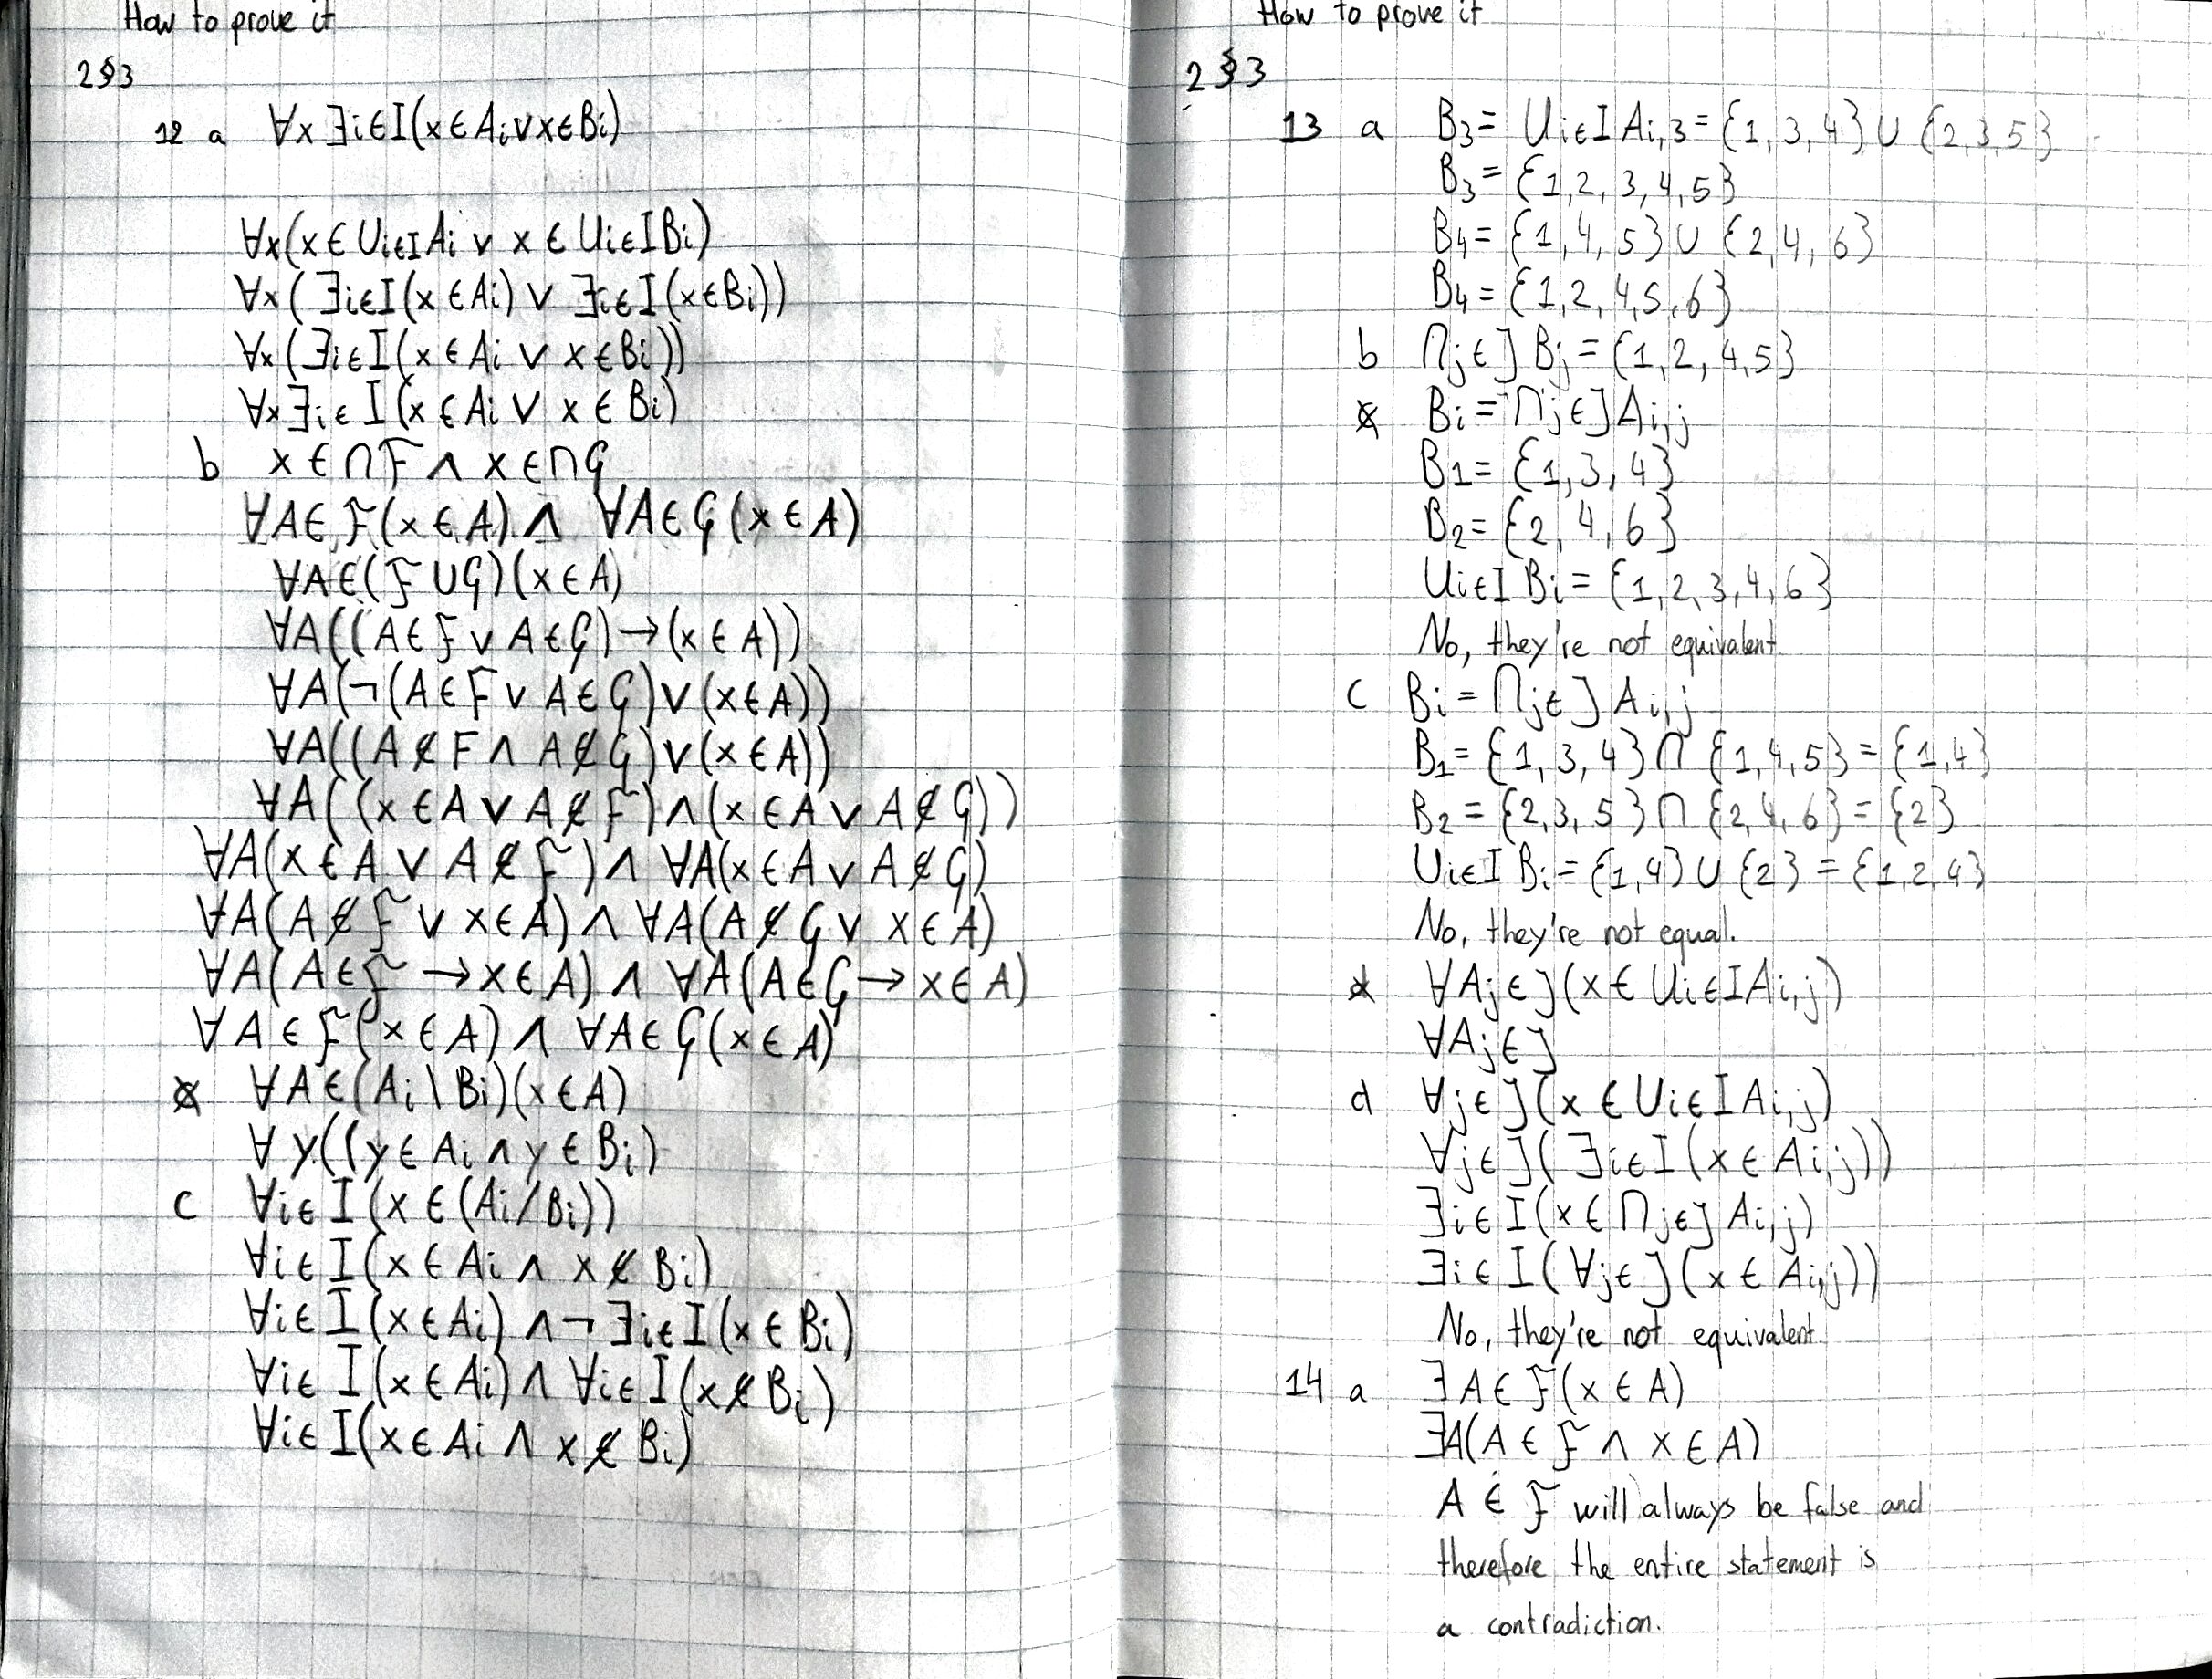 How to prove it
2§3
12 a ∀x ∃i∈I(x∈Ai∨x∈Bi)
∀x(x∈Ui∈I Ai ∨ x∈Ui∈I Bi)
∀x(∃i∈I(x∈Ai) ∨ ∃i∈I(x∈Bi))
∀x(∃i∈I(x∈Ai ∨ x∈Bi))
∀x∃i∈I(x∈Ai ∨ x∈Bi)
b x∈∩F ∧ x∈∩G
∀A∈F(x∈A) ∧ ∀A∈G(x∈A)
∀A∈(F∪G)(x∈A)
∀A((A∈F∨A∈G)→(x∈A))
∀A(¬(A∈F∨A∈G)∨(x∈A))
∀A((A∉F∧A∉G)∨(x∈A))
∀A((x∈A∨A∉F)∧(x∈A∨A∉G))
∀A(x∈A∨A∉F)∧∀A(x∈A∨A∉G)
∀A(A∉F∨x∈A)∧∀A(A∉G∨x∈A)
∀A(A∈F→x∈A)∧∀A(A∈G→x∈A)
∀A∈F(x∈A)∧∀A∈G(x∈A)
∀A∈(Ai\Bi)(x∈A)
∀y((y∈Ai∧y∈Bi)
c ∀i∈I(x∈(Ai/Bi))
∀i∈I(x∈Ai∧x∉Bi)
∀i∈I(x∈Ai)∧¬∃i∈I(x∈Bi)
∀i∈I(x∈Ai)∧∀i∈I(x∉Bi)
∀i∈I(x∈Ai∧x∉Bi)
How to prove it
2§3
13 a B3= Ui∈I Ai,3={1,3,4}∪{2,3,5}
B3={1,2,3,4,5}
B4={1,4,5}∪{2,4,6}
B4={1,2,4,5,6}
b ∩j∈J Bj={1,2,4,5}
Bi=∩j∈J Ai,j
B1={1,3,4}
B2={2,4,6}
Ui∈I Bi={1,2,3,4,6}
No, they're not equivalent
c Bi=∩j∈J Ai,j
B1={1,3,4}∩{1,4,5}={1,4}
B2={2,3,5}∩{2,4,6}={2}
Ui∈I Bi={1,4}∪{2}={1,2,4}
No, they're not equal.
d ∀Aj∈J(x∈Ui∈I Ai,j)
∀Aj∈J
d ∀j∈J(x∈Ui∈I Ai,j)
∀j∈J(∃i∈I(x∈Ai,j))
∃i∈I(x∈∩j∈J Ai,j)
∃i∈I(∀j∈J(x∈Ai,j))
No, they're not equivalent.
14 a ∃A∈F(x∈A)
∃A(A∈F∧x∈A)
A∈F will always be false and
therefore the entire statement is
a contradiction.